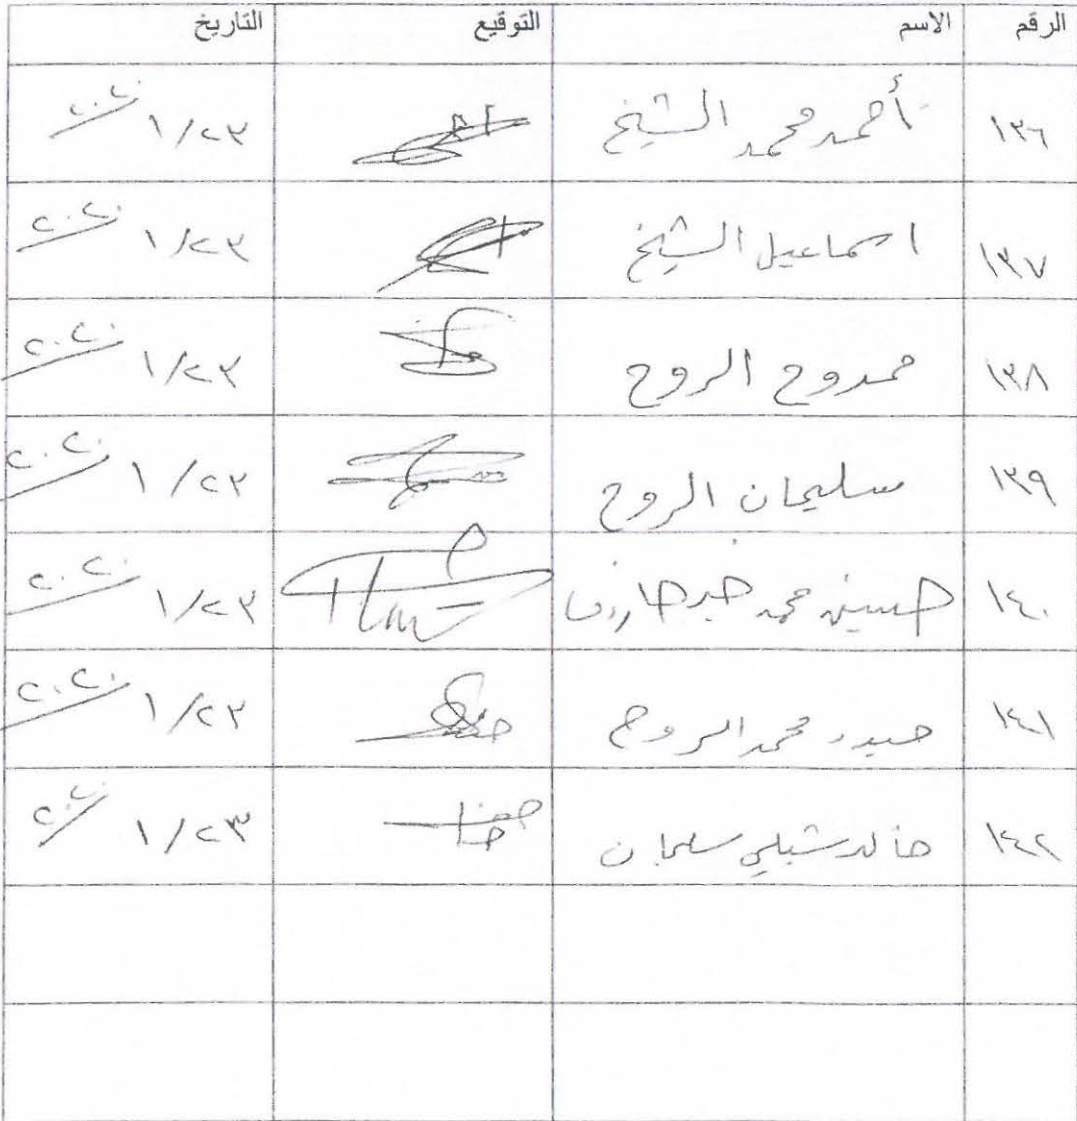 الرقم الاسم التوقيع التاريخ
١٣٦ أحمد محمد الشيخ ١/٢٣ ٢٠٢٠
١٣٧ اسماعيل الشيخ ١/٢٣ ٢٠٢٠
١٣٨ ممدوح الروح ١/٢٣ ٢٠٢٠
١٣٩ سليمان الروح ١/٢٣ ٢٠٢٠
١٤٠ حسين محمد ١/٢٣ ٢٠٢٠
١٤١ حيدر محمد الروح ١/٢٣ ٢٠٢٠
١٤٢ خالد شبلي سليمان ١/٢٣ ٢٠٢٠